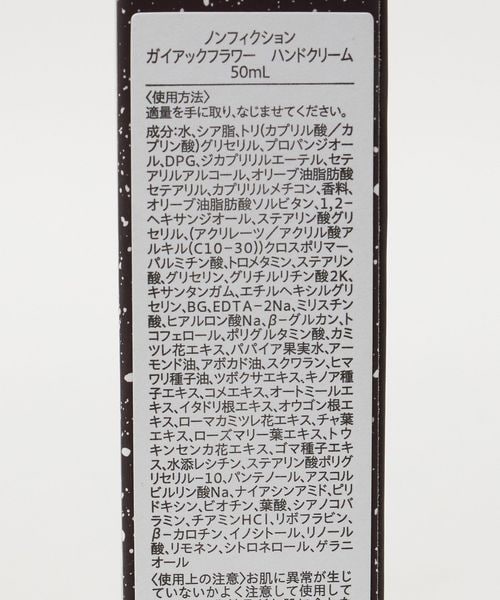 ノンフィクション
ガイアックフラワー　ハンドクリーム
50mL
〈使用方法〉
適量を手に取り、なじませてください。
成分:水、シア脂、トリ(カプリル酸／カ
プリン酸)グリセリル、プロパンジオー
ル、DPG、ジカプリリルエーテル、セテ
アリルアルコール、オリーブ油脂肪酸
セテアリル、カプリリルメチコン、香料、
オリーブ油脂肪酸ソルビタン、1,2-
ヘキサンジオール、ステアリン酸グリ
セリル、(アクリレーツ／アクリル酸
アルキル(C10-30))クロスポリマー、
パルミチン酸、トロメタミン、ステアリン
酸、グリセリン、グリチルリチン酸2K、
キサンタンガム、エチルヘキシルグリ
セリン、BG、EDTA-2Na、ミリスチン
酸、ヒアルロン酸Na、β-グルカン、ト
コフェロール、ポリグルタミン酸、カミ
ツレ花エキス、パパイア果実水、アー
モンド油、アボカド油、スクワラン、ヒマ
ワリ種子油、ツボクサエキス、キノア種
子エキス、コメエキス、オートミールエ
キス、イタドリ根エキス、オウゴン根エ
キス、ローマカミツレ花エキス、チャ葉
エキス、ローズマリー葉エキス、トウ
キンセンカ花エキス、ゴマ種子エキ
ス、水添レシチン、ステアリン酸ポリグ
リセリル-10、パンテノール、アスコル
ビルリン酸Na、ナイアシンアミド、ピリ
ドキシン、ビオチン、葉酸、シアノコバ
ラミン、チアミンHCl、リボフラビン、
β-カロチン、イノシトール、リノール
酸、リモネン、シトロネロール、ゲラニ
オール
〈使用上の注意〉お肌に異常が生じ
ていないかよく注意して使用して